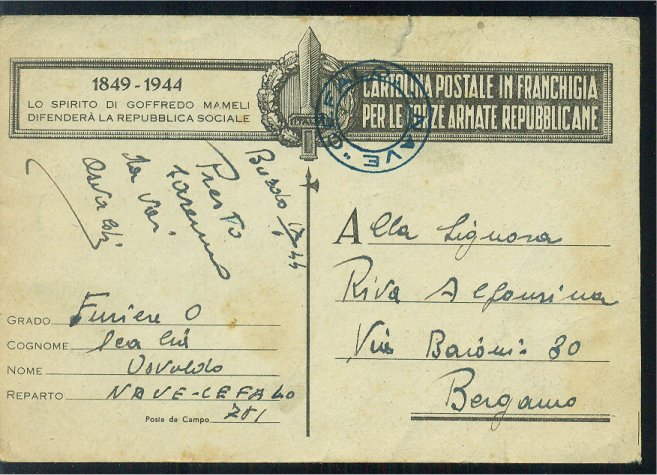 1849-1944
LO SPIRITO DI GOFFREDO MAMELI
DIFENDERÀ LA REPUBBLICA SOCIALE
CARTOLINA POSTALE IN FRANCHIGIA
PER LE FORZE ARMATE REPUBBLICANE
NAVE "CEFALO"
Presto
saremo
da voi
Osvaldo
Alla Signora
Riva Alfonsina
Via Baioni 30
Bergamo
GRADO Furiere O
COGNOME
NOME Osvaldo
REPARTO NAVE-CEFALO
Posta da Campo 781